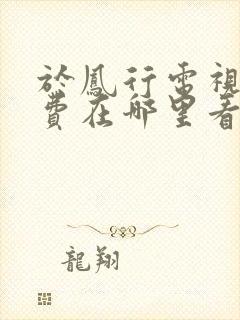 於鳳行電視
費在哪里看
龍翔